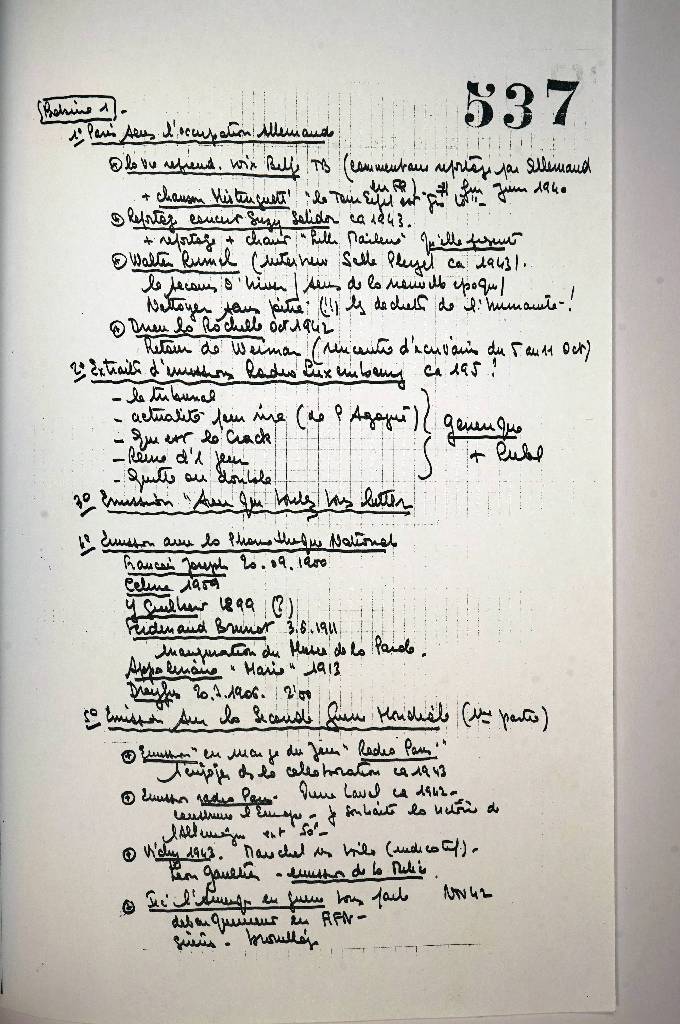 537
Bobine 1 -
1° Paris sous l'occupation Allemande
la vie reprend. voix Belge TB (commentaire reportage par Allemand
en FR) Juin 1940
+ chanson Mistinguett "la Tour Eiffel est
Reportage concert Suzy Solidor ca 1943.
+ reportage + chant "Lilly Marlene" qu'elle
Walter Rummel (interview Salle Pleyel ca 1943).
le secours d'hiver / sens de la nouvelle époque /
Nettoyer sans pitié (!!) les déchets de l'humanité - !
Drieu la Rochelle Oct 1942
Retour de Weimar (rencontre d'écrivains du 5 au 11 Oct)
2° Extraits d'émissions Radio Luxembourg ca 195 ?
- le tribunal
- actualité pour rire (de P
- qui est le Crack
- Reine d'1 jour
- Quitte ou double
générique
+ Publ
3° Emission "
4° Emission avec la Phonothèque National
François Joseph 20.09.1900
Céline 1959
Y Guilbert 1899 (?)
Ferdinand Brunot 3.6.1911
inauguration du Musée de la Parole.
Appolinaire "Marie" 1913
Dreyfus 20.7.1906. 2'00
5° Emission sur la Seconde Guerre Mondiale (1ère partie)
Emission "en marge du jeu" Radio Paris"
de la collaboration ca 1943
Emission radio Paris - Pierre Laval ca 1942 -
construire l'Europe - je souhaite la victoire de
l'Allemagne
Vichy 1943. Maréchal nous voilà (indicatif) -
Léon Gaultier - émission de la Milice.
Ici l'Amérique en guerre vous parle Nov 42
débarquement en AFN -
brouillage